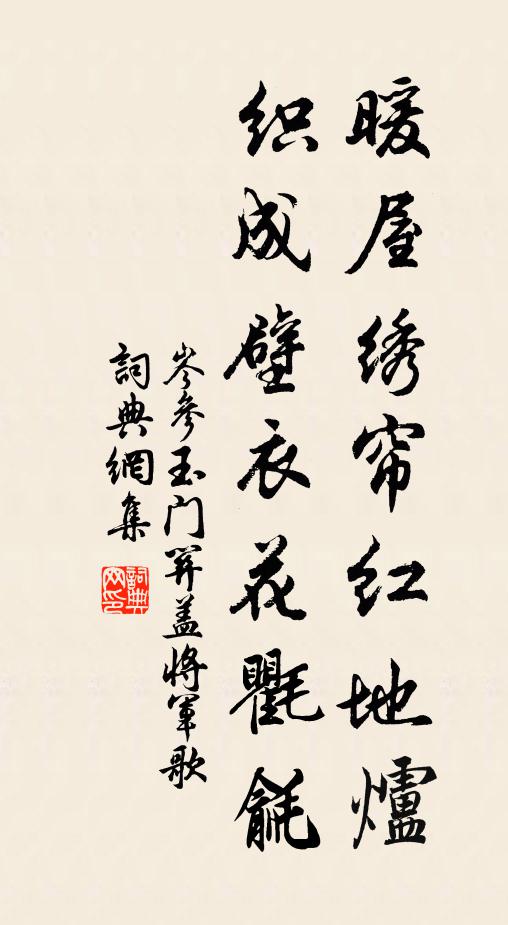 暖屋绣帘红地爐
织成壁衣花氍毹
岑参玉门关盖将軍歌
詞典網集
詞典网印